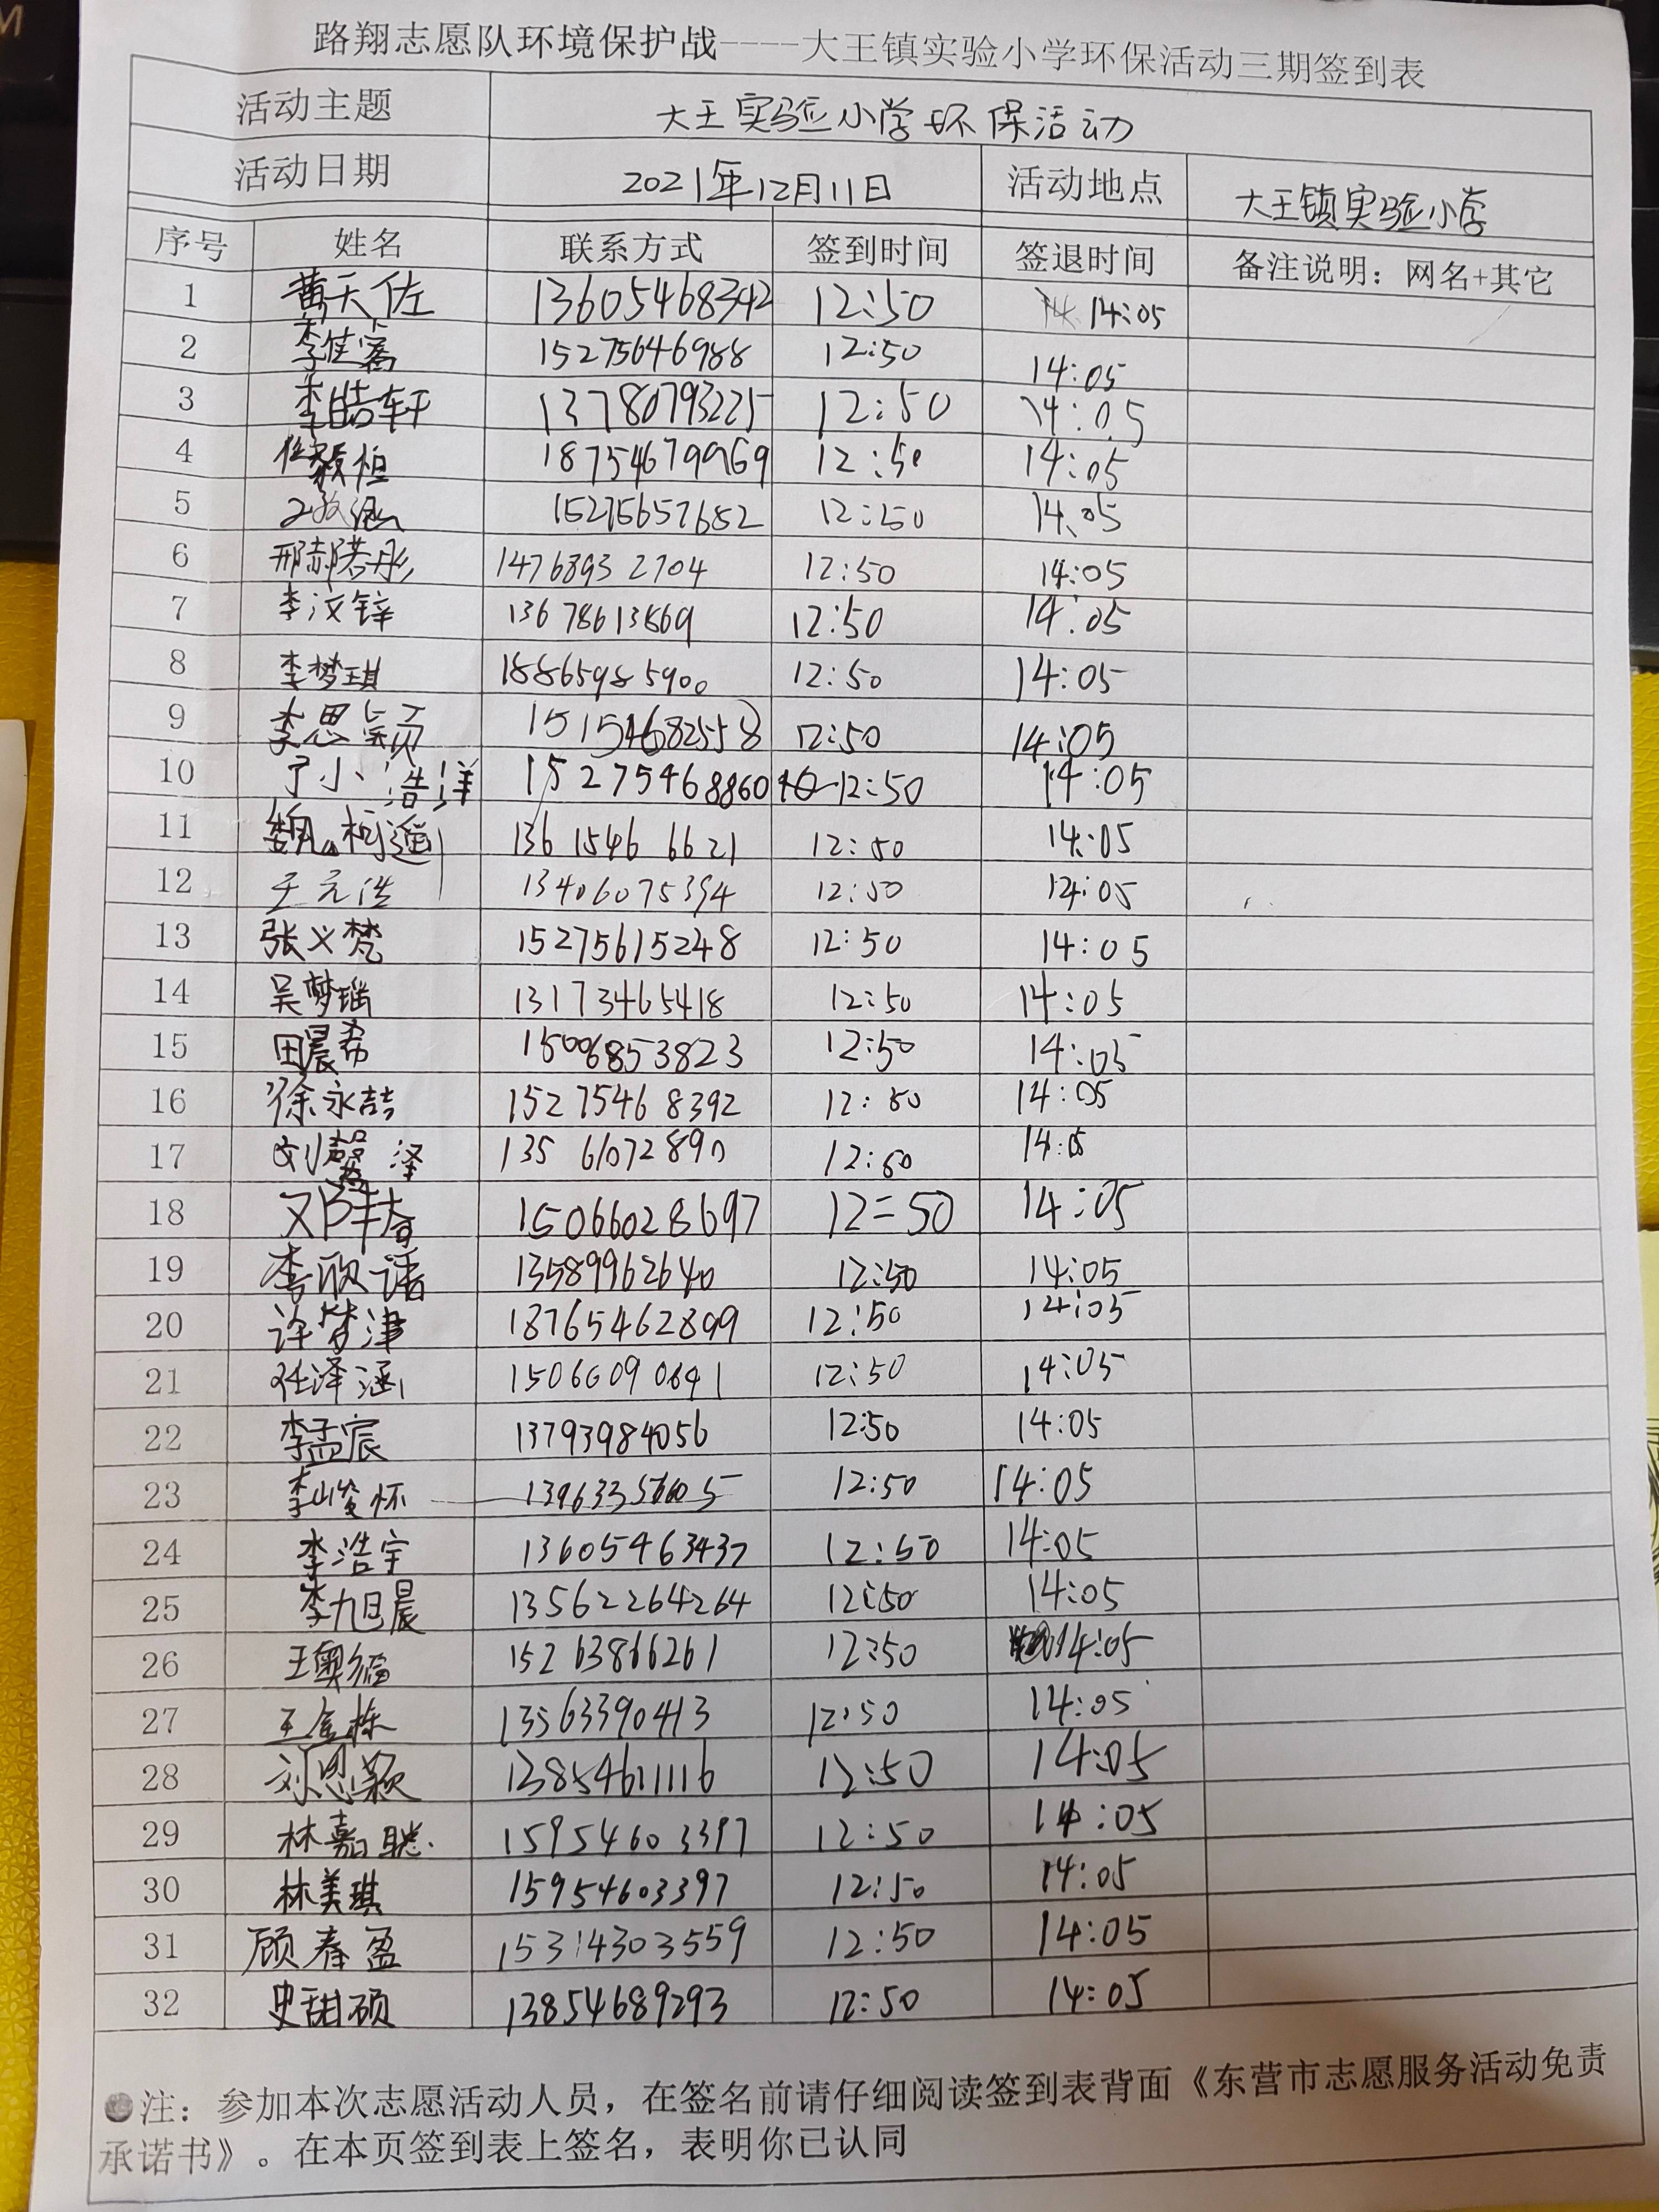 路翔志愿队环境保护战----大王镇实验小学环保活动三期签到表
活动主题 大王实验小学环保活动
活动日期 2021年12月11日 活动地点 大王镇实验小学
序号 姓名 联系方式 签到时间 签退时间 备注说明：网名+其它
1 黄天佐 13605468342 12:50 14:05
2 李佳窩 15275646988 12:50 14:05
3 李皓轩 13780793225 12:50 14:05
4 任毅恒 18754679969 12:50 14:05
5 15275657682 12:50 14:05
6 邢郝若彤 14768932704 12:50 14:05
7 李汶锌 13678613869 12:50 14:05
8 李梦琪 18865985900 12:50 14:05
9 李思颖 15154682558 12:50 14:05
10 丁小浩洋 15275468860 12:50 14:05
11 魏柯遥 136 1546 6621 12:50 14:05
12 王元浩 13406075394 12:50 14:05
13 张义梵 15275615248 12:50 14:05
14 吴梦瑶 13173465418 12:50 14:05
15 田晨希 15006853823 12:50 14:05
16 徐永喆 15275468392 12:50 14:05
17 刘馨泽 135 61072890 12:50 14:05
18 15066028697 12=50 14:05
19 李欣诺 13589962640 12:50 14:05
20 许梦津 18765462899 12:50 14:05
21 任泽涵 12:50 14:05
22 李孟宸 13793984056 12:50 14:05
23 李峻怀 12:50 14:05
24 李浩宇 13605463437 12:50 14:05
25 李旭晨 13562264264 12:50 14:05
26 王奥 15263866261 12:50 14:05
27 王金栋 13563390413 12:50 14:05
28 刘恩颖 13854611116 12:50 14:05
29 林嘉聪 15954603397 12:50 14:05
30 林美琪 15954603397 12:50 14:05
31 顾春盈 15314303559 12:50 14:05
32 史甜硕 13854689293 12:50 14:05
●注：参加本次志愿活动人员，在签名前请仔细阅读签到表背面《东营市志愿服务活动免责
承诺书》。在本页签到表上签名，表明你已认同